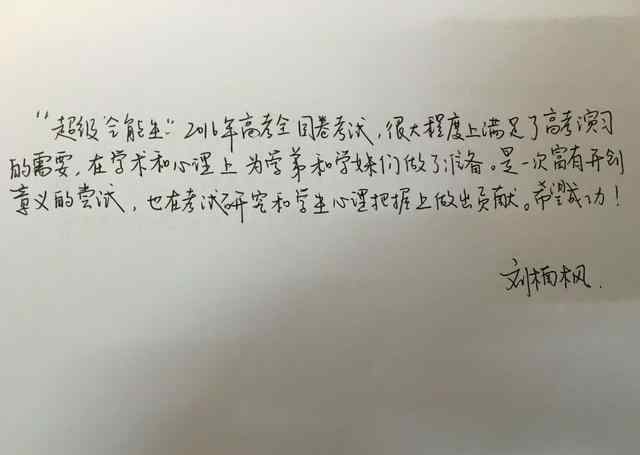 “超级全能生”2016年高考全国卷考试，很大程度上满足了高考演习
的需要，在学术和心理上为学弟和学妹们做了准备。是一次富有开创
意义的尝试，也在考试研究和学生心理把握上做出贡献。希望成功！
刘楠枫.